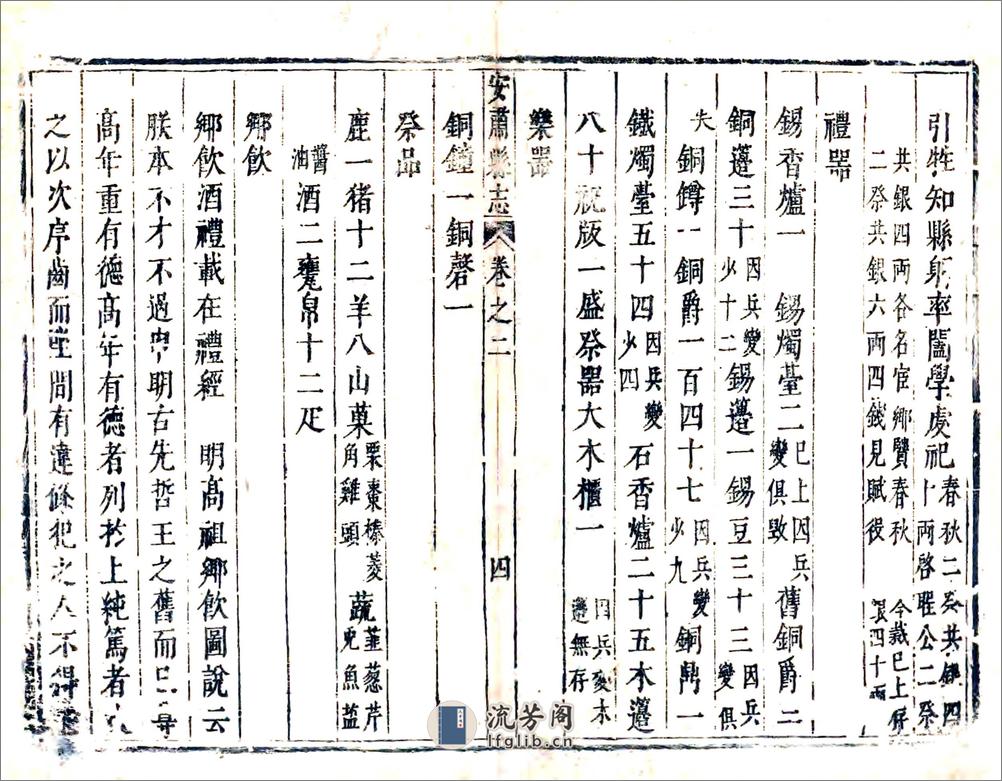 引牲知縣躬率闔學虔祀春秋二祭共銀四
十兩啓聖公二祭
共銀四兩各名宦鄉賢春秋
二祭共銀六兩四錢見賦役
今裁已上存
銀四十兩
禮器
錫香爐一 錫燭臺二已上因兵
變俱毀舊銅爵二
銅籩三十因兵變
少十二錫籩一錫豆三十三因兵
變俱
失銅鐏一銅爵一百四十七因兵變
少九銅鼎一
鐵燭臺五十四因兵變
少四石香爐二十五木籩
八十祝版一盛祭器大木櫃一因兵變木
籩無存
樂器
銅鐘一銅磬一
安肅縣志 卷之二 四
祭品
鹿一猪十二羊八山菓栗棗榛菱
角雞頭蔬韮葱芹
兎魚
醬
油酒二甕帛十二疋
鄉飲
鄉飲酒禮載在禮經 明高祖鄉飲圖說云
朕本不才不過申明古先哲王之舊而已
高年重有德高年有德者列於上純篤者
之以次序齒而 間有違條犯之人不得
流芳阁
lfglib.cn